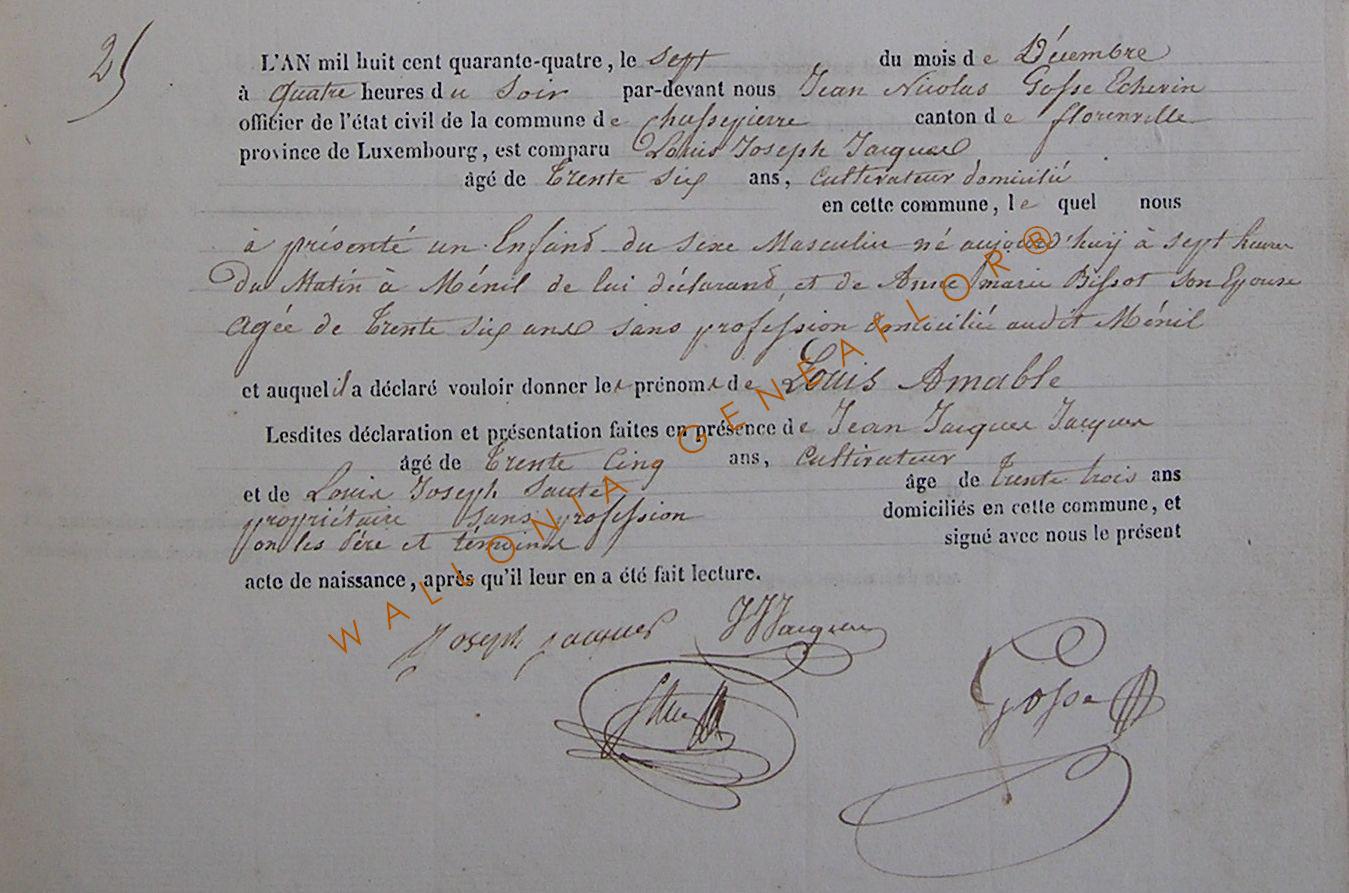 25
L'AN mil huit cent quarante-quatre, le sept du mois de Décembre
à quatre heures du Soir par-devant nous Jean Nicolas Gosse Echevin
officier de l'état civil de la commune de Chassepierre canton de florenville
province de Luxembourg, est comparu Louis Joseph Jacques
âgé de Trente Six ans, Cultivateur domicilié
en cette commune, le quel nous
à présenté un Enfand du Sexe Masculin né aujourd'huy à sept heures
Du Matin à Ménil de lui déclarand, et de Anne marie Bissot son Epouse
agée de Trente Six ans sans profession domicilié audit Ménil
et auquel il a déclaré vouloir donner les prénoms de Louis Amable
Lesdites déclaration et présentation faites en présence de Jean Jacques Jacques
âgé de Trente Cinq ans, Cultivateur
et de Louis Joseph âge de Trente trois ans
propriétaire sans profession domiciliés en cette commune, et
on les Père et témoins signé avec nous le présent
acte de naissance, après qu'il leur en a été fait lecture.
Joseph Jacques JJJacques
Gosse
WALLONIA GENEAFLOR®